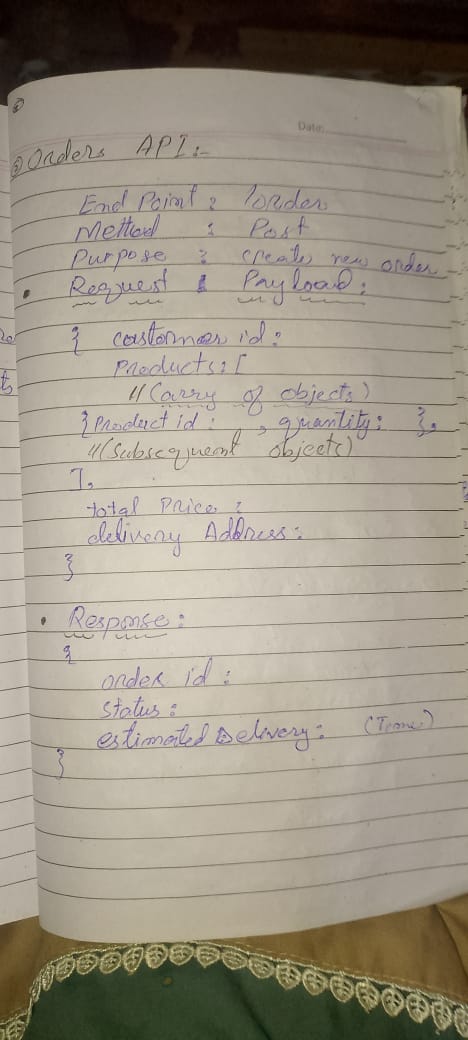 Date:
③ Orders API:-
End Point : /order
Method : Post
Purpose : creates new order
• Request Payload:
{ customer id:
Products: [
//(array of objects)
{ Product id: , quantity: },
//(Subsequent objects)
],
total Price :
delivery Address:
}
• Response:
{
order id :
Status :
estimated Delivery: (Time)
}